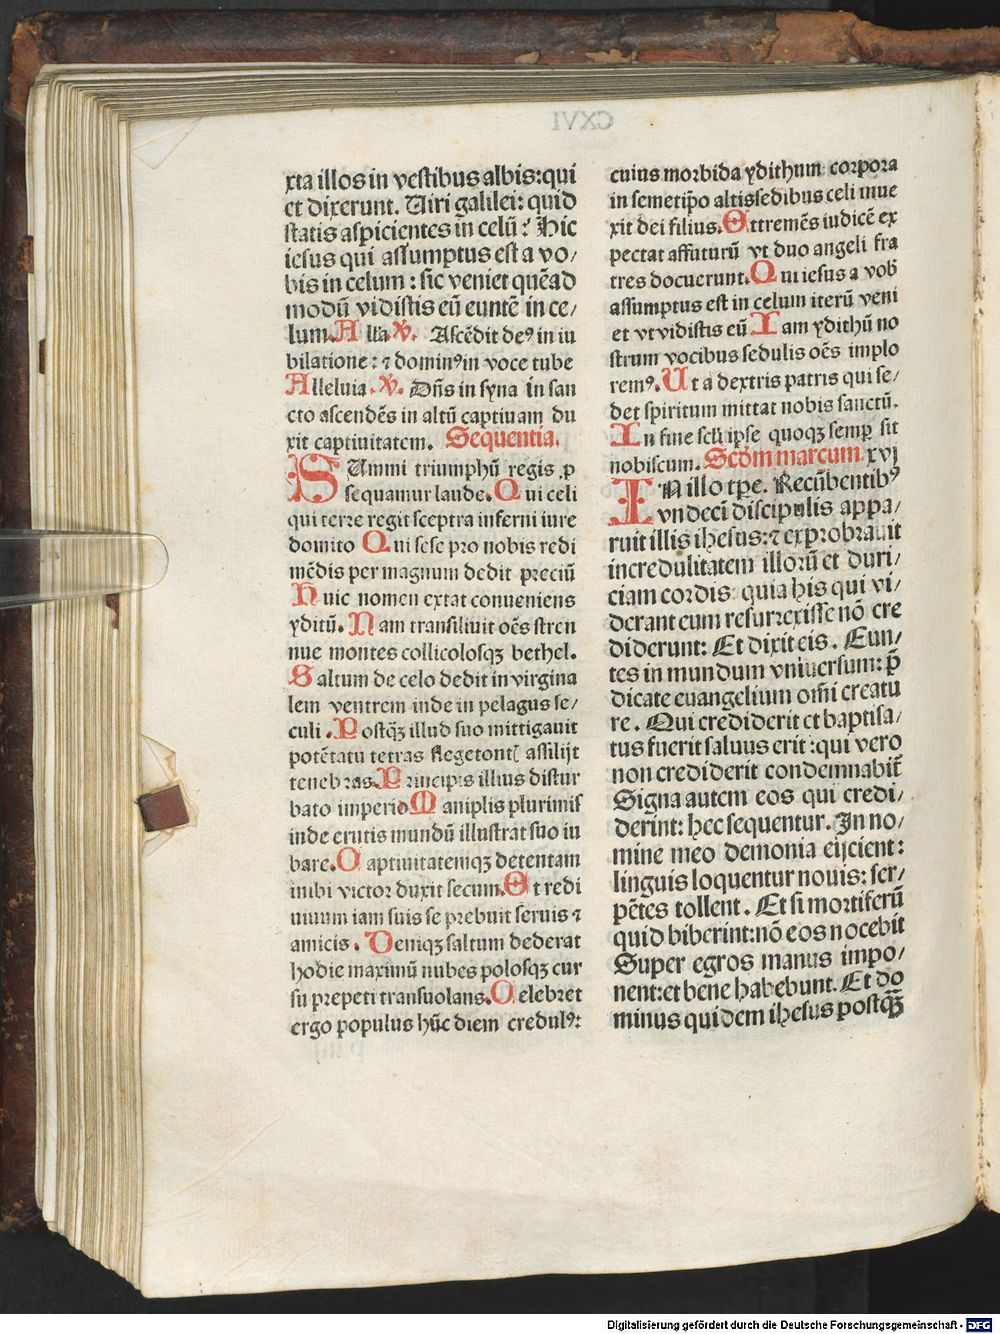 xta illos in vestibus albis: qui
et dixerunt. Uiri galilei: quid
statis aspicientes in celū? Hic
iesus qui assumptus est a vo/
bis in celum: sic veniet quēad
modū vidistis eū euntē in ce/
lum. Alla. ℣. Ascēdit deꝰ in iu
bilatione: ⁊ dominꝰ in voce tube
Alleluia. ℣. Dn̄s in syna in san
cto ascendēs in altū captiuam du
xit captiuitatem. Sequentia.
SUmmi triumphū regis ꝓ
sequamur laude. Qui celi
qui terre regit sceptra inferni iure
domito Qui sese pro nobis redi
mēdis per magnum dedit preciū
Huic nomen extat conueniens
yditū. Nam transiliuit oēs stren
nue montes collicolosqꝫ bethel.
Saltum de celo dedit in virgina
lem ventrem inde in pelagus se/
culi. Postqꝫ illud suo mittigauit
potētatu tetras flegetontꝭ assilijt
tenebras. Principis illius distur
bato imperio Maniplis plurimis
inde erutis mundū illustrat suo iu
bare. Captiuitatemqꝫ detentam
inibi victor duxit secum. Et redi
uiuum iam suis se prebuit seruis ⁊
amicis. Deniqꝫ saltum dederat
hodie maximū nubes polosqꝫ cur
su prepeti transuolans. Celebret
ergo populus hūc diem credulꝰ:
cuius morbida ydithum corpora
in semetip̄o altis sedibus celi inue
xit dei filius. Et tremēs iudicē ex
pectat affuturū vt duo angeli fra
tres docuerunt. Qui iesus a vob̄
assumptus est in celum iterū veni
et vt vidistis eū Iam ydithū no
strum vocibus sedulis oēs implo
remꝰ. Ut a dextris patris qui se/
det spiritum mittat nobis sanctū.
In fine secli ipse quoqꝫ semꝑ sit
nobiscum. Scd̄m marcum xvj
IN illo tp̄e. Recūbentibꝰ
vndecī discipulis appa/
ruit illis ihesus: ⁊ exprobrauit
incredulitatem illorū et duri/
ciam cordis quia his qui vi/
derant eum resurrexisse nō cre
diderunt: Et dixit eis. Eun/
tes in mundum vniuersum: p̄
dicate euangelium om̄i creatu
re. Qui crediderit et baptisa/
tus fuerit saluus erit: qui vero
non crediderit condemnabit̄
Signa autem eos qui credi/
derint: hec sequentur. In no/
mine meo demonia eijcient:
linguis loquentur nouis: ser/
pētes tollent. Et si mortiferū
quid biberint: nō eos nocebit
Super egros manus impo/
nent: et bene habebunt. Et do
minus quidem ihesus postqꝫ̄
CXVI
Digitalisierung gefördert durch die Deutsche Forschungsgemeinschaft - DFG